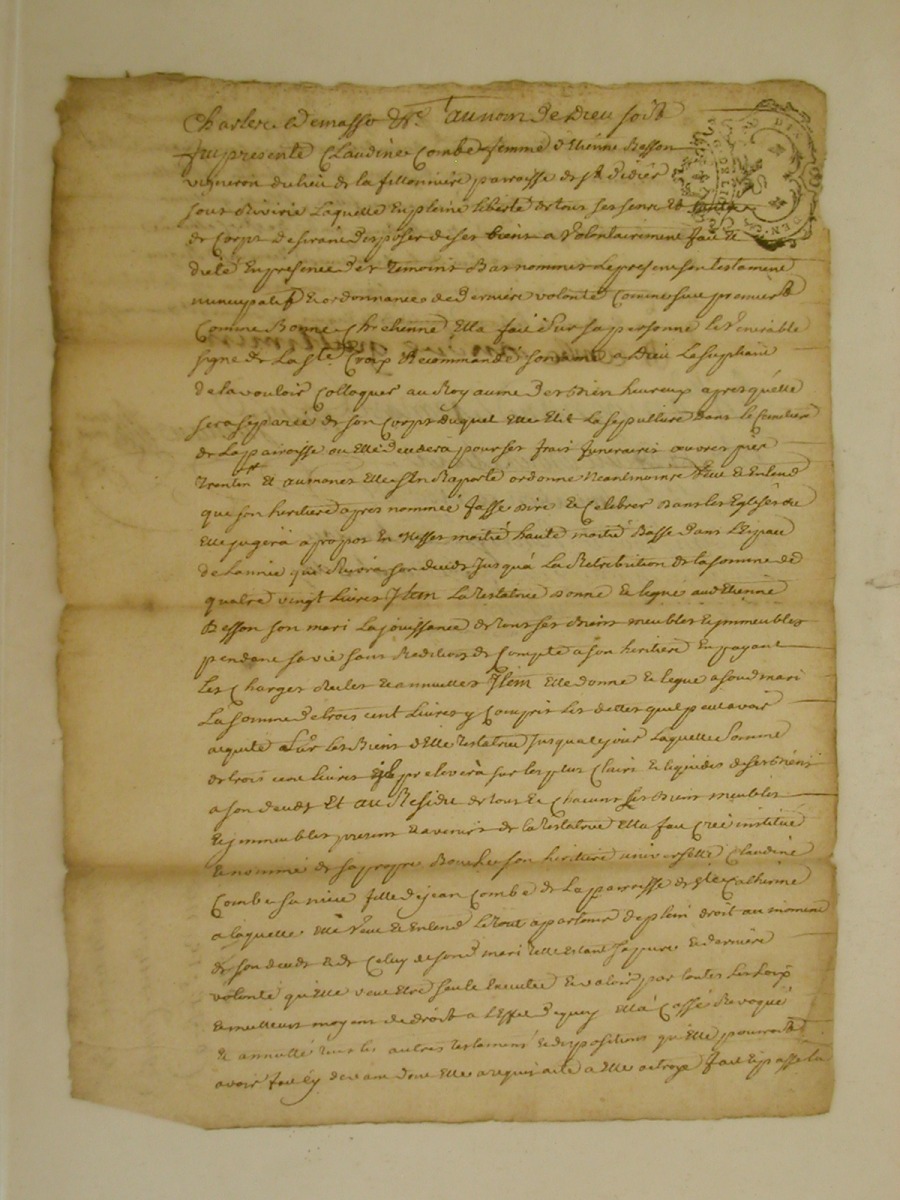 Charles Demasso &c. au nom de Dieu soit
fut presente Claudine Combe femme d'Etienne Besson
vigneron du lieu de la fillonniere parroisse de st Didier
sous Riverie Laquelle En pleine liberté de tous ses sens Et
de Corps desirant disposer de ses biens a volontairement fait Et
dicté En presence des temoins Bas nommes le present son testament
nuncupatif & ordonnance de Derniere volonté Comme suit premierement
Comme Bonne Chretienne Ella fait Sur sa personne le venerable
signe de La ste Croix Recommandé son ame a Dieu Le supliant
de la vouloir Colloquer au Royaume des Bien heureux apres qu'elle
sera separée de son Corps duquel Elle Elit La sepulture Dans le Cimetiere
de La parroisse ou Elle Decedera pour ses frais funeraires œuvres pies
Et aumones Elle s'en Raporte ordonne Neantmoins Veut & Entend
que son heritiere apres nommée fasse dire & Celebrer Dans les Eglises ou
Elle jugera a propos En Messes moitié haute moitié Basse Dans L'Espace
de L'année qui suivra son deceds Jusqu'a La Retribution de la somme de
quatre vingt Livres Item La testatrice donne & legue aud Etienne
Besson son mari La jouissance de tous ses Biens meubles & immeubles
pendant sa vie sans Reddition de Compte a son heritiere En payant
Les Charges Reelles & annuelles Item Elle donne & legue a son d mari
La somme de trois cent Livres y Compris les dettes qu'il peut avoir
acquité Sur Les Biens d'Elle testatrice jusqu'a ce jour Laquelle Somme
de trois cent Livres il prelevera sur les plus Clairs & liquides de ses Biens
a son deceds Et au Residu de tous & Chacuns ses Biens meubles
& immeubles presens & avenirs de la testatrice Ella fait Créé institué
& nommé de sa propre Bouche son heritiere universelle Claudine
Combe sa niece fille de jean Combe de La parroisse de ste Catherine
a laquelle Elle Veut & Entend Le tout apartenir de plein droit au moment
de son deceds & de Celuy de son d mari telle Etant sa pure & derniere
volonté qu'Elle veut Etre seule Executée & valoir par toutes les Loix
& meilleurs moyens de droit a L'Effet de quoy Ella Cassé Revoqué
& annullé tous les autres testamens & dispositions qu'Elle pourroit
avoir fait cy devant Dont Elle a requis acte a Elle octroyé fait & passé